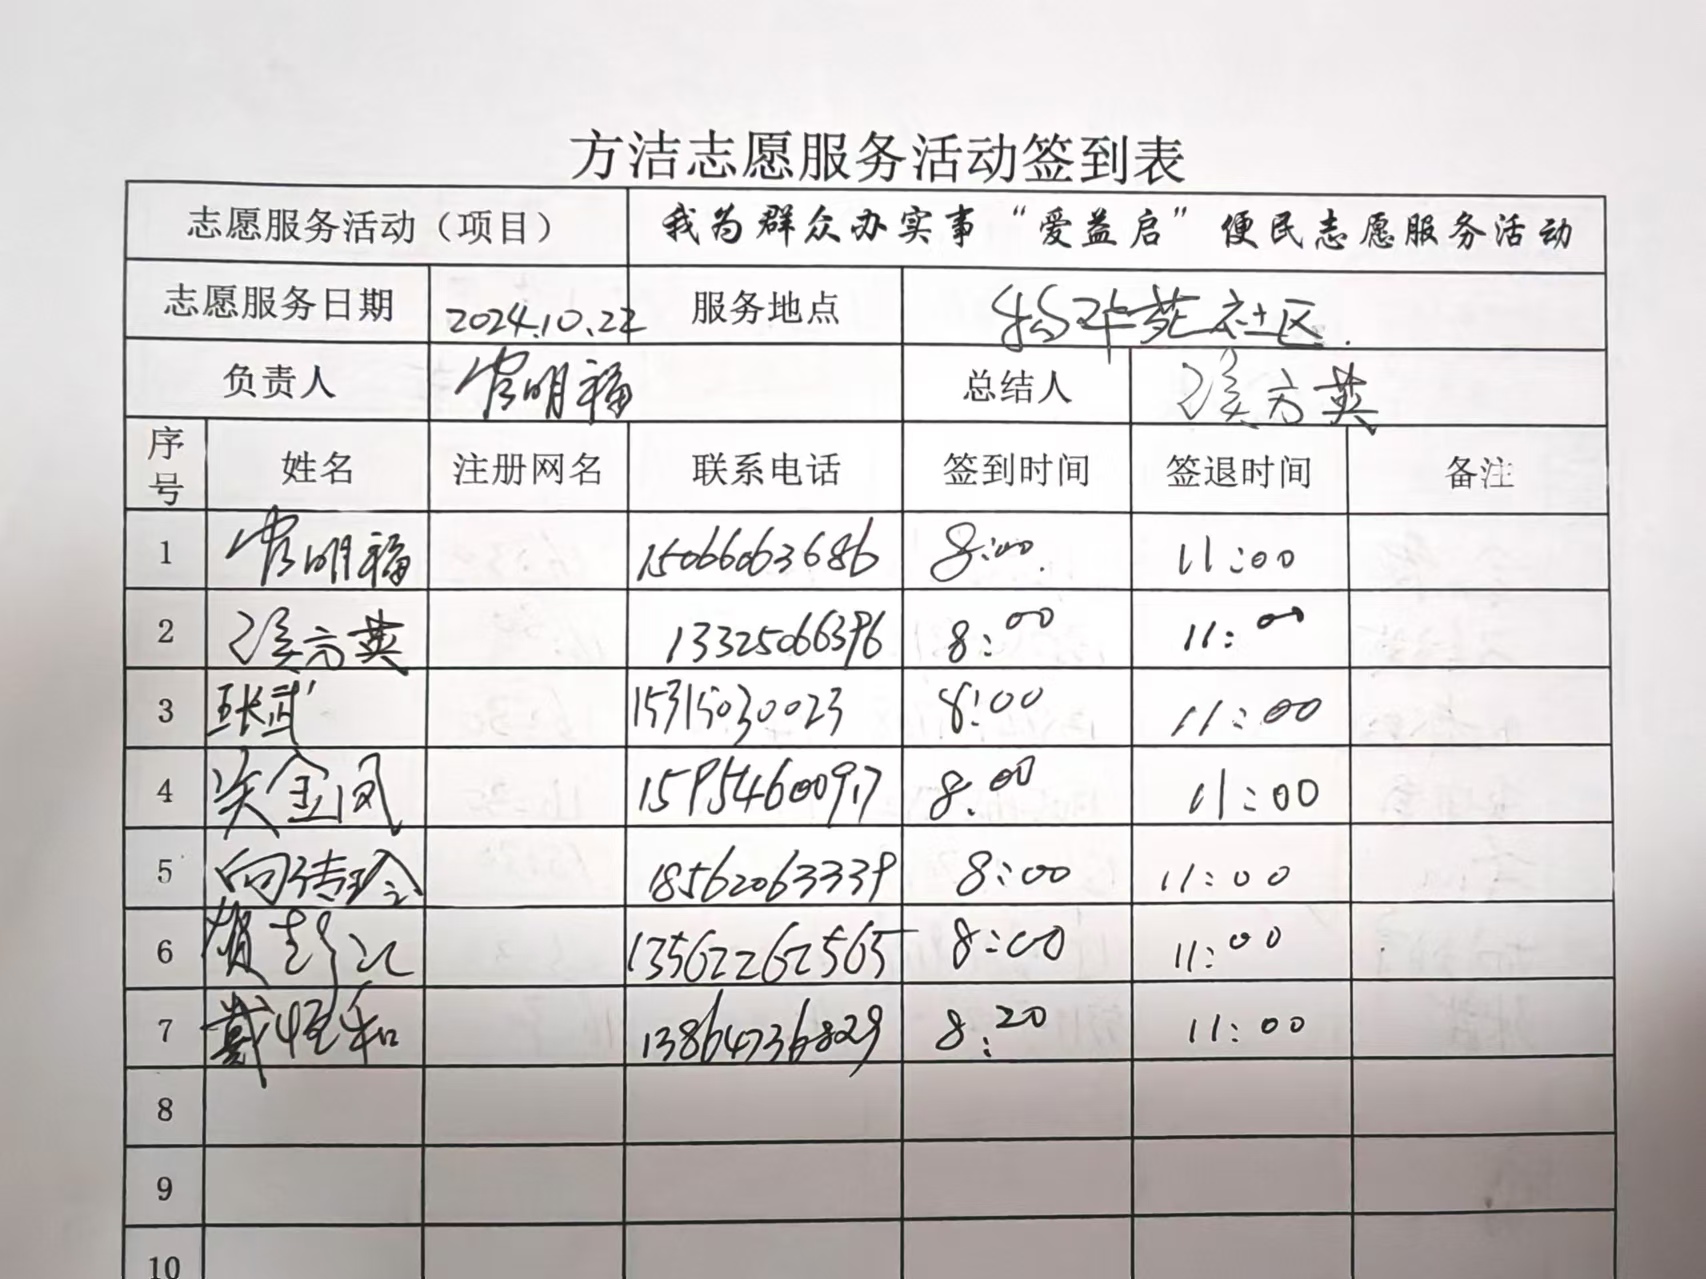 方洁志愿服务活动签到表
志愿服务活动（项目） 我为群众办实事“爱益启”便民志愿服务活动
志愿服务日期 2024.10.22 服务地点 松华苑社区.
负责人 常明福 总结人 侯方英
序号 姓名 注册网名 联系电话 签到时间 签退时间 备注
1 常明福 15066063686 8:00 11:00
2 侯方英 13325066396 8:00 11:00
3 张武 15315030023 8:00 11:00
4 关金凤 15954600917 8:00 11:00
5 向传珍 18562063339 8:00 11:00
6 贺彭江 13562262565 8:00 11:00
7 戴恒和 13864736829 8:20 11:00
8
9
10